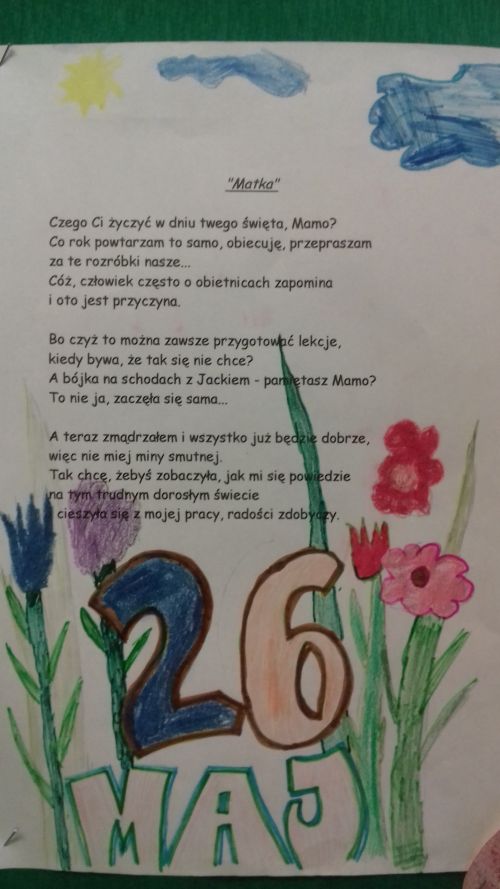 "Matka"
Czego Ci życzyć w dniu twego święta, Mamo?
Co rok powtarzam to samo, obiecuję, przepraszam
za te rozróbki nasze...
Cóż, człowiek często o obietnicach zapomina
i oto jest przyczyna.
Bo czyż to można zawsze przygotować lekcje,
kiedy bywa, że tak się nie chce?
A bójka na schodach z Jackiem - pamiętasz Mamo?
To nie ja, zaczęła się sama...
A teraz zmądrzałem i wszystko już będzie dobrze,
więc nie miej miny smutnej.
Tak chcę, żebyś zobaczyła, jak mi się powiedzie
na tym trudnym dorosłym świecie
i cieszyła się z mojej pracy, radości zdobyczy.
26
MAJ